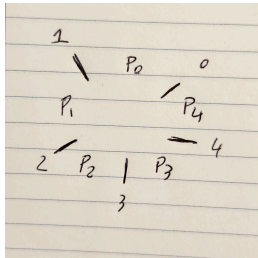 1 P₀ 0
P₁ P₄
2 P₂ P₃ 4
3